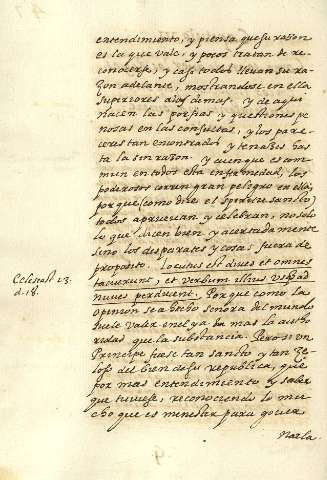 entendimiento, y piensa que su razon
es la que vale, y pocos tratan de re-
conocerse, y casi todos lleuan su ra-
zon adelante, mostrandose en ella
superiores a los demas. y de aqui
nacen las porfias y questiones pe
nosas en las consultas, y los pare-
ceres tan encontrados y tenazes has
ta la sinrazon. y aunque es com-
mun en todos esta enfermedad, los
poderosos corren gran peligro en ella,
porque (como dize el Spiritu sancto)
todos aprueuan y celebran, no solo
lo que dicen bien y acertadamente
sino los disparates y cosas fuera de
proposito. Locutus est diues et omnes
tacuerunt, et verbum illius vsque ad
nuues perducent. Porque como la
opinion sea otro señora del mundo
suele valer en el ya mas la autho
ridad que la substancia. Pero si vn
Principe fuese tan sancto y tan ze-
loso del bien de su republica, que
por mas entendimiento y saber
que tuuiese, reconociendo lo mu
cho que es menester para gouer
narla
Eclesiast 13.
d. 18.